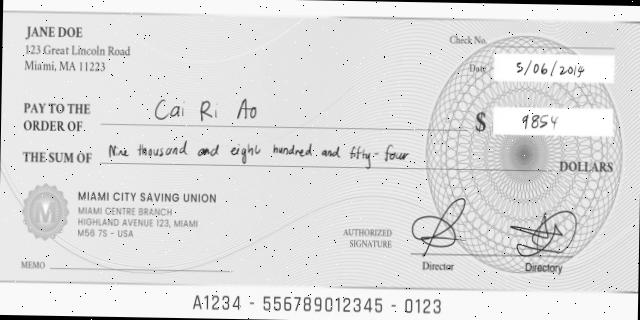 JANE DOE
123 Great Lincoln Road
Miami, MA 11223
Check No.
Date 5/06/2014
PAY TO THE ORDER OF Cai Ri Ao
$ 9854
THE SUM OF Nine thousand and eight hundred and fifty-four DOLLARS
MIAMI CITY SAVING UNION
MIAMI CENTRE BRANCH -
HIGHLAND AVENUE 123, MIAMI
M56 7S - USA
AUTHORIZED SIGNATURE
Director
Directory
MEMO
A1234 - 556789012345 - 0123